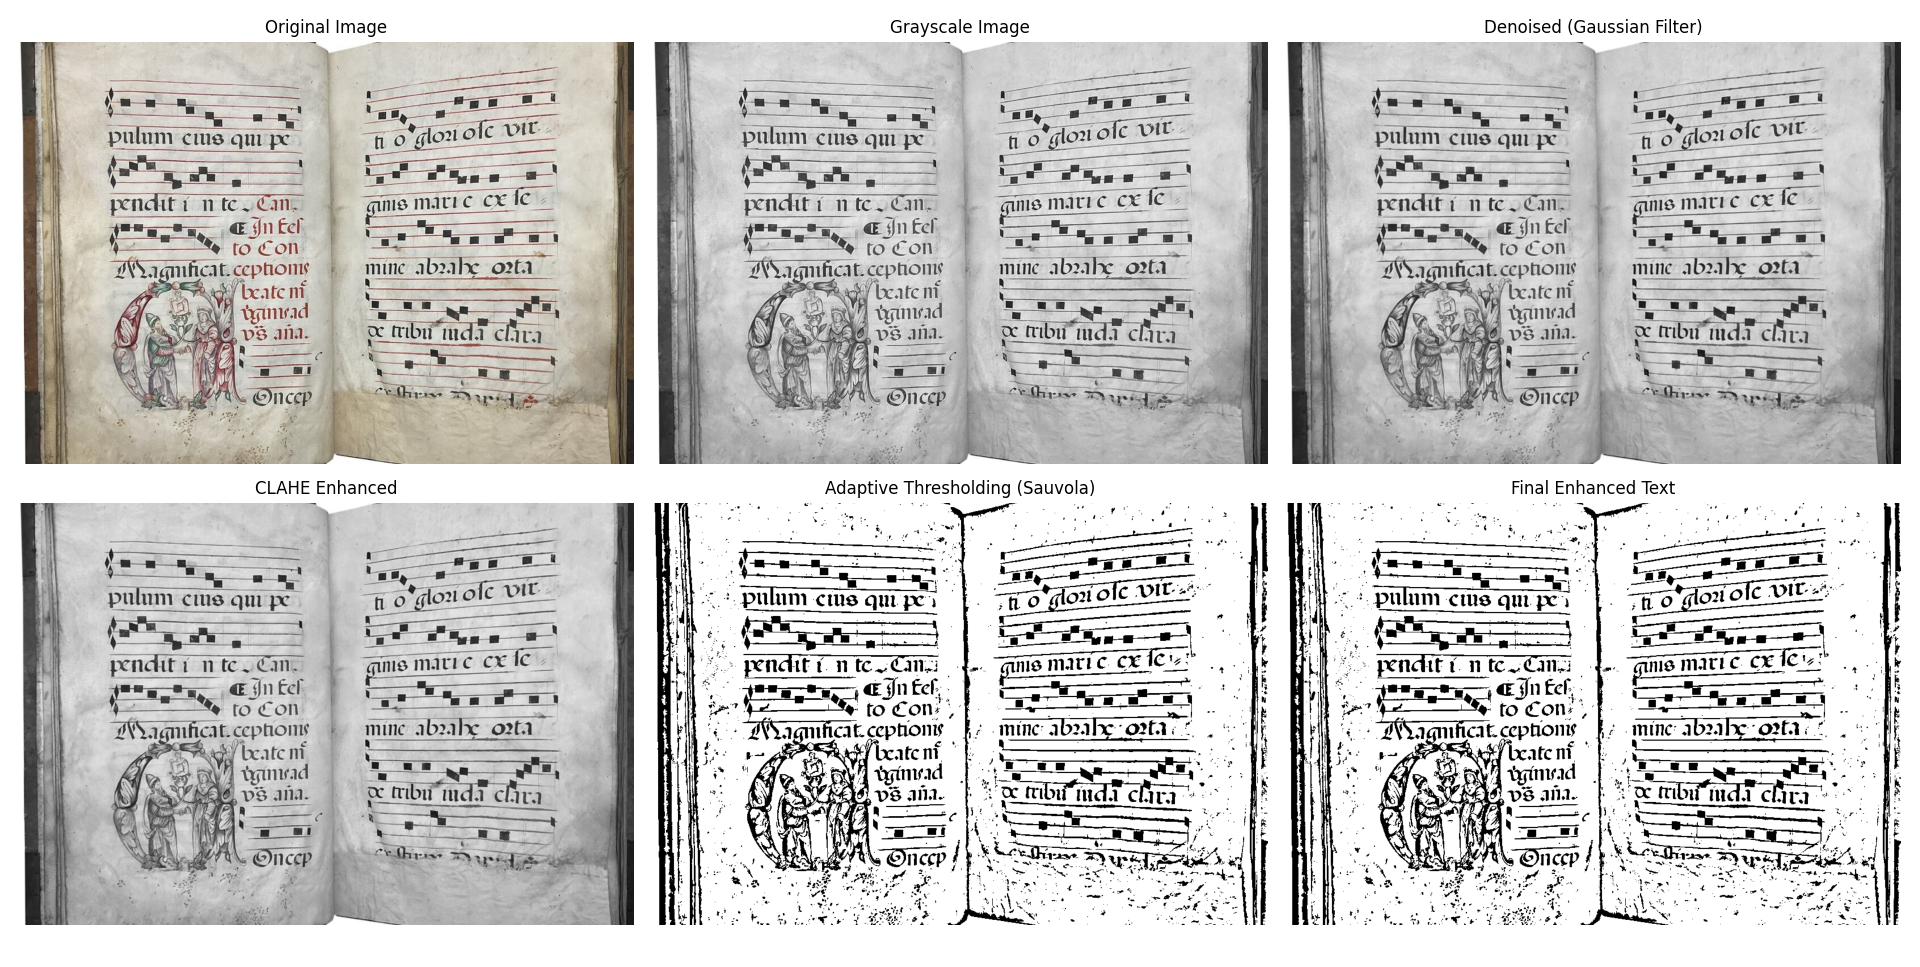 Original Image
pulum eius qui pe
pendit i n te Can.
In fes
to Con
Magnificat. ceptionis
beate m̃
v̄ginis ad
vs̃ aña.
Oncep
ti o gloriose vir
ginis marie ex se
mine abrahę orta
de tribu iuda clara
Grayscale Image
pulum eius qui pe
pendit i n te Can.
In fes
to Con
Magnificat. ceptionis
beate m̃
v̄ginis ad
vs̃ aña.
Oncep
ti o gloriose vir
ginis marie ex se
mine abrahę orta
de tribu iuda clara
Denoised (Gaussian Filter)
pulum eius qui pe
pendit i n te Can.
In fes
to Con
Magnificat. ceptionis
beate m̃
v̄ginis ad
vs̃ aña.
Oncep
ti o gloriose vir
ginis marie ex se
mine abrahę orta
de tribu iuda clara
CLAHE Enhanced
pulum eius qui pe
pendit i n te Can.
In fes
to Con
Magnificat. ceptionis
beate m̃
v̄ginis ad
vs̃ aña.
Oncep
ti o gloriose vir
ginis marie ex se
mine abrahę orta
de tribu iuda clara
Adaptive Thresholding (Sauvola)
pulum eius qui pe
pendit i n te Can.
In fes
to Con
Magnificat. ceptionis
beate m̃
v̄ginis ad
vs̃ aña.
Oncep
ti o gloriose vir
ginis marie ex se
mine abrahę orta
de tribu iuda clara
Final Enhanced Text
pulum eius qui pe
pendit i n te Can.
In fes
to Con
Magnificat. ceptionis
beate m̃
v̄ginis ad
vs̃ aña.
Oncep
ti o gloriose vir
ginis marie ex se
mine abrahę orta
de tribu iuda clara